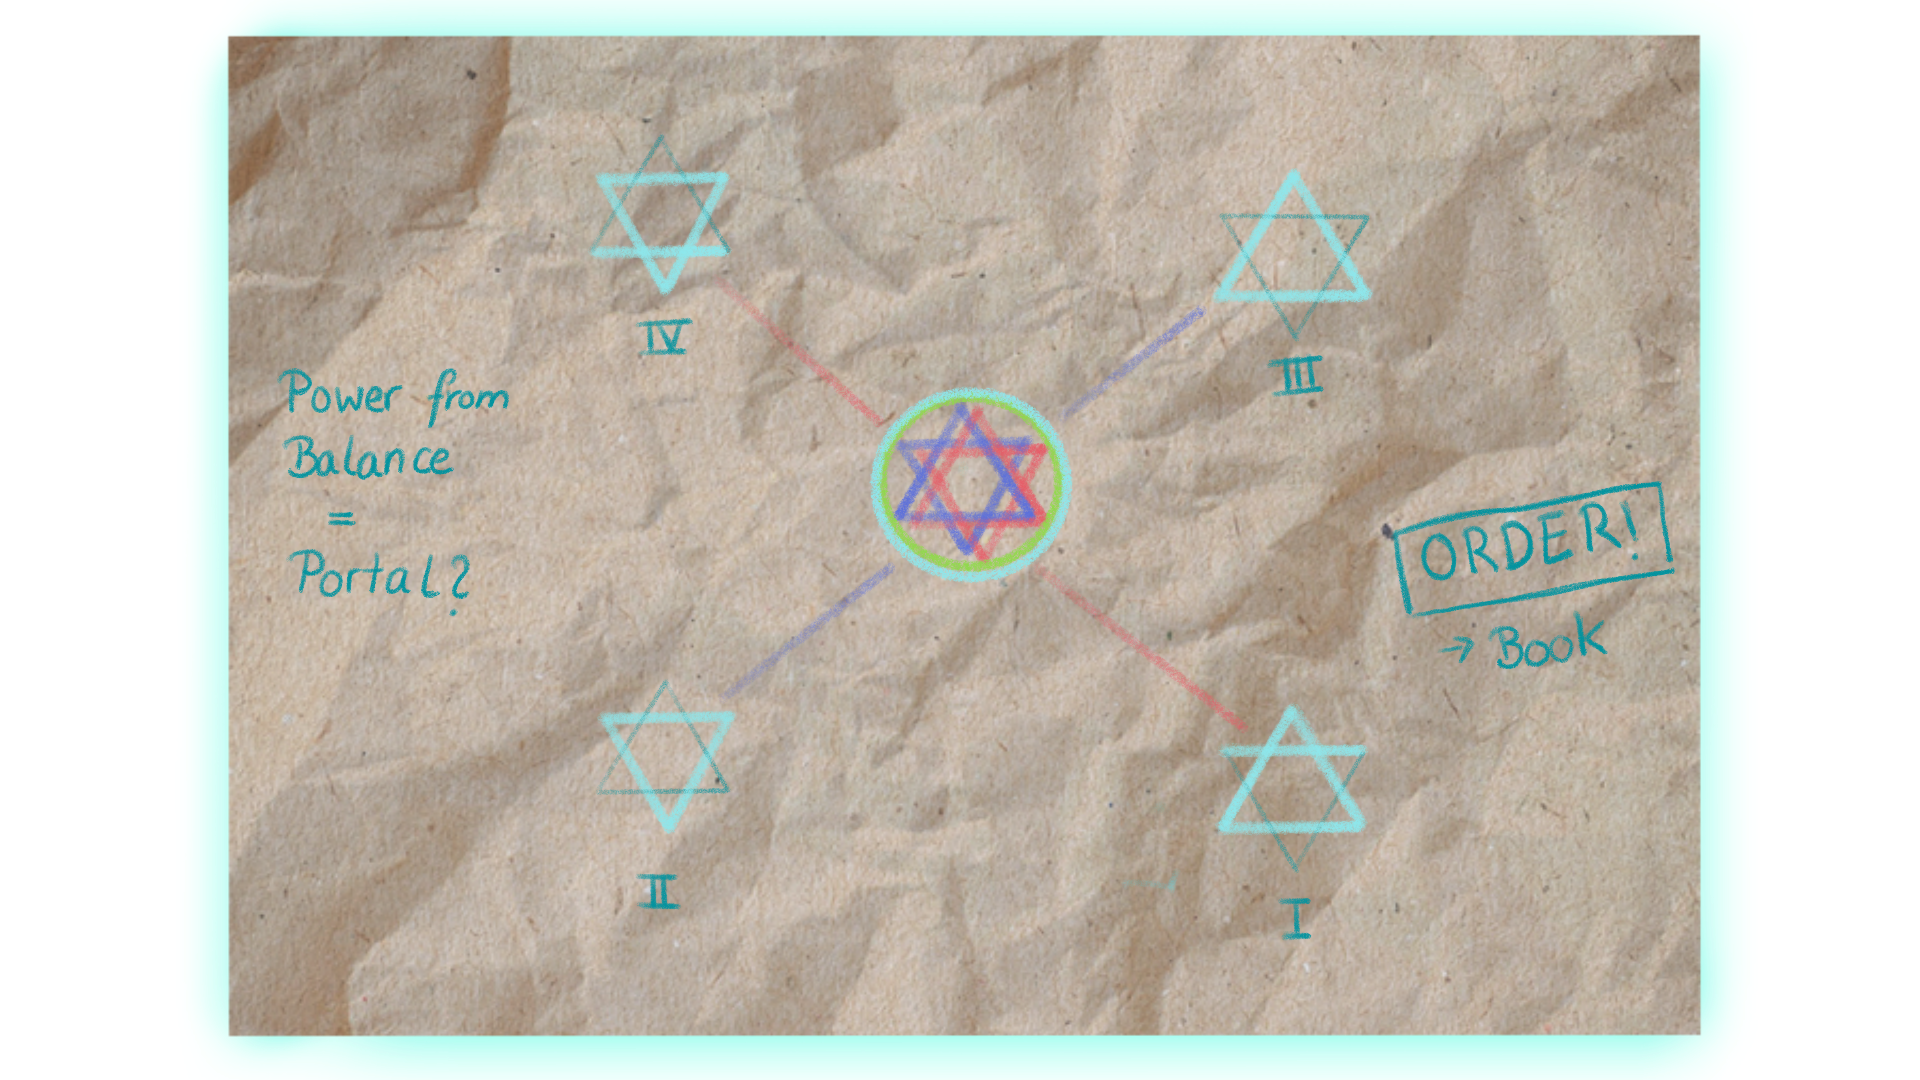 IV
III
Power from
Balance
=
Portal?
ORDER!
→ Book
II
I